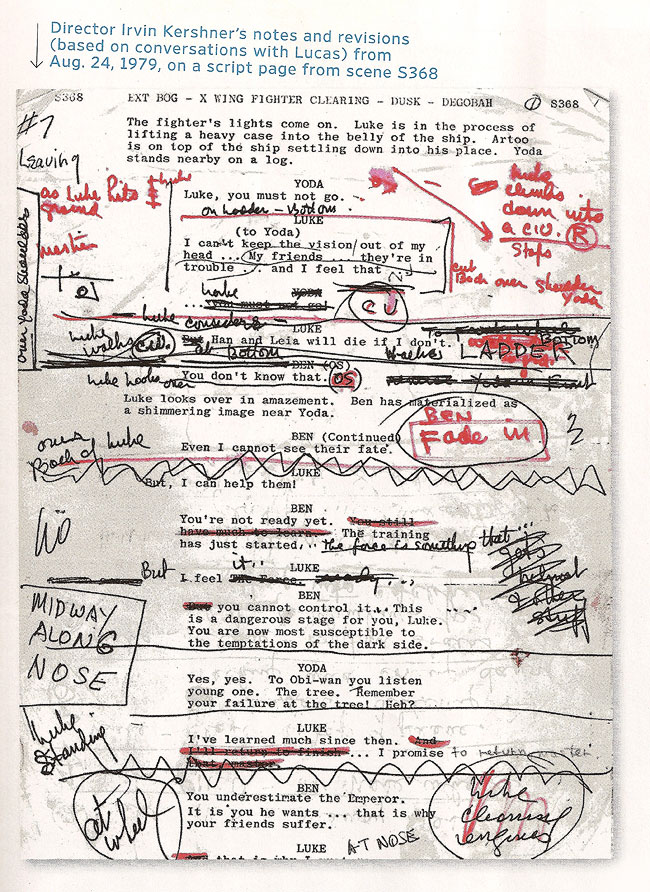 Director Irvin Kershner's notes and revisions
(based on conversations with Lucas) from
Aug. 24, 1979, on a script page from scene S368
S368 EXT BOG - X WING FIGHTER CLEARING - DUSK - DEGOBAH 1 S368
#7
Leaving
The fighter's lights come on. Luke is in the process of
lifting a heavy case into the belly of the ship. Artoo
is on top of the ship settling down into his place. Yoda
stands nearby on a log.
YODA
Luke, you must not go.
as Luke hits
ground
Luke
climbs
down into
a CU. R
Stops
on Ladder - Bottom
LUKE
(to Yoda)
I can't keep the vision out of my
head ... My friends ... they're in
trouble ... and I feel that
cut
Back over shoulder
Yoda
over Yoda Shoulders
YODA
... You must not go!
CU
Luke considers
LUKE
But Han and Leia will die if I don't.
Luke
walks
Bottom
To Bottom
LADDER
BEN (OS)
You don't know that. OS
Luke looks over
Luke looks over in amazement. Ben has materialized as
a shimmering image near Yoda.
BEN
Fade in
BEN (Continued)
Even I cannot see their fate.
over
Back of Luke
LUKE
But, I can help them!
BEN
You're not ready yet. You still
have much to learn. The training
has just started... The force is something that...
LUKE
But I feel it... The Force
BEN
But you cannot control it... This
is a dangerous stage for you, Luke.
You are now most susceptible to
the temptations of the dark side.
MIDWAY
ALONG
NOSE
YODA
Yes, yes. To Obi-wan you listen
young one. The tree. Remember
your failure at the tree! Heh?
Luke
Standing
LUKE
I've learned much since then. And
I'll return to finish... I promise to return master
that, master.
BEN
You underestimate the Emperor.
It is you he wants ... that is why
your friends suffer.
at
wheel
Luke
cleaning
engines
LUKE AT NOSE